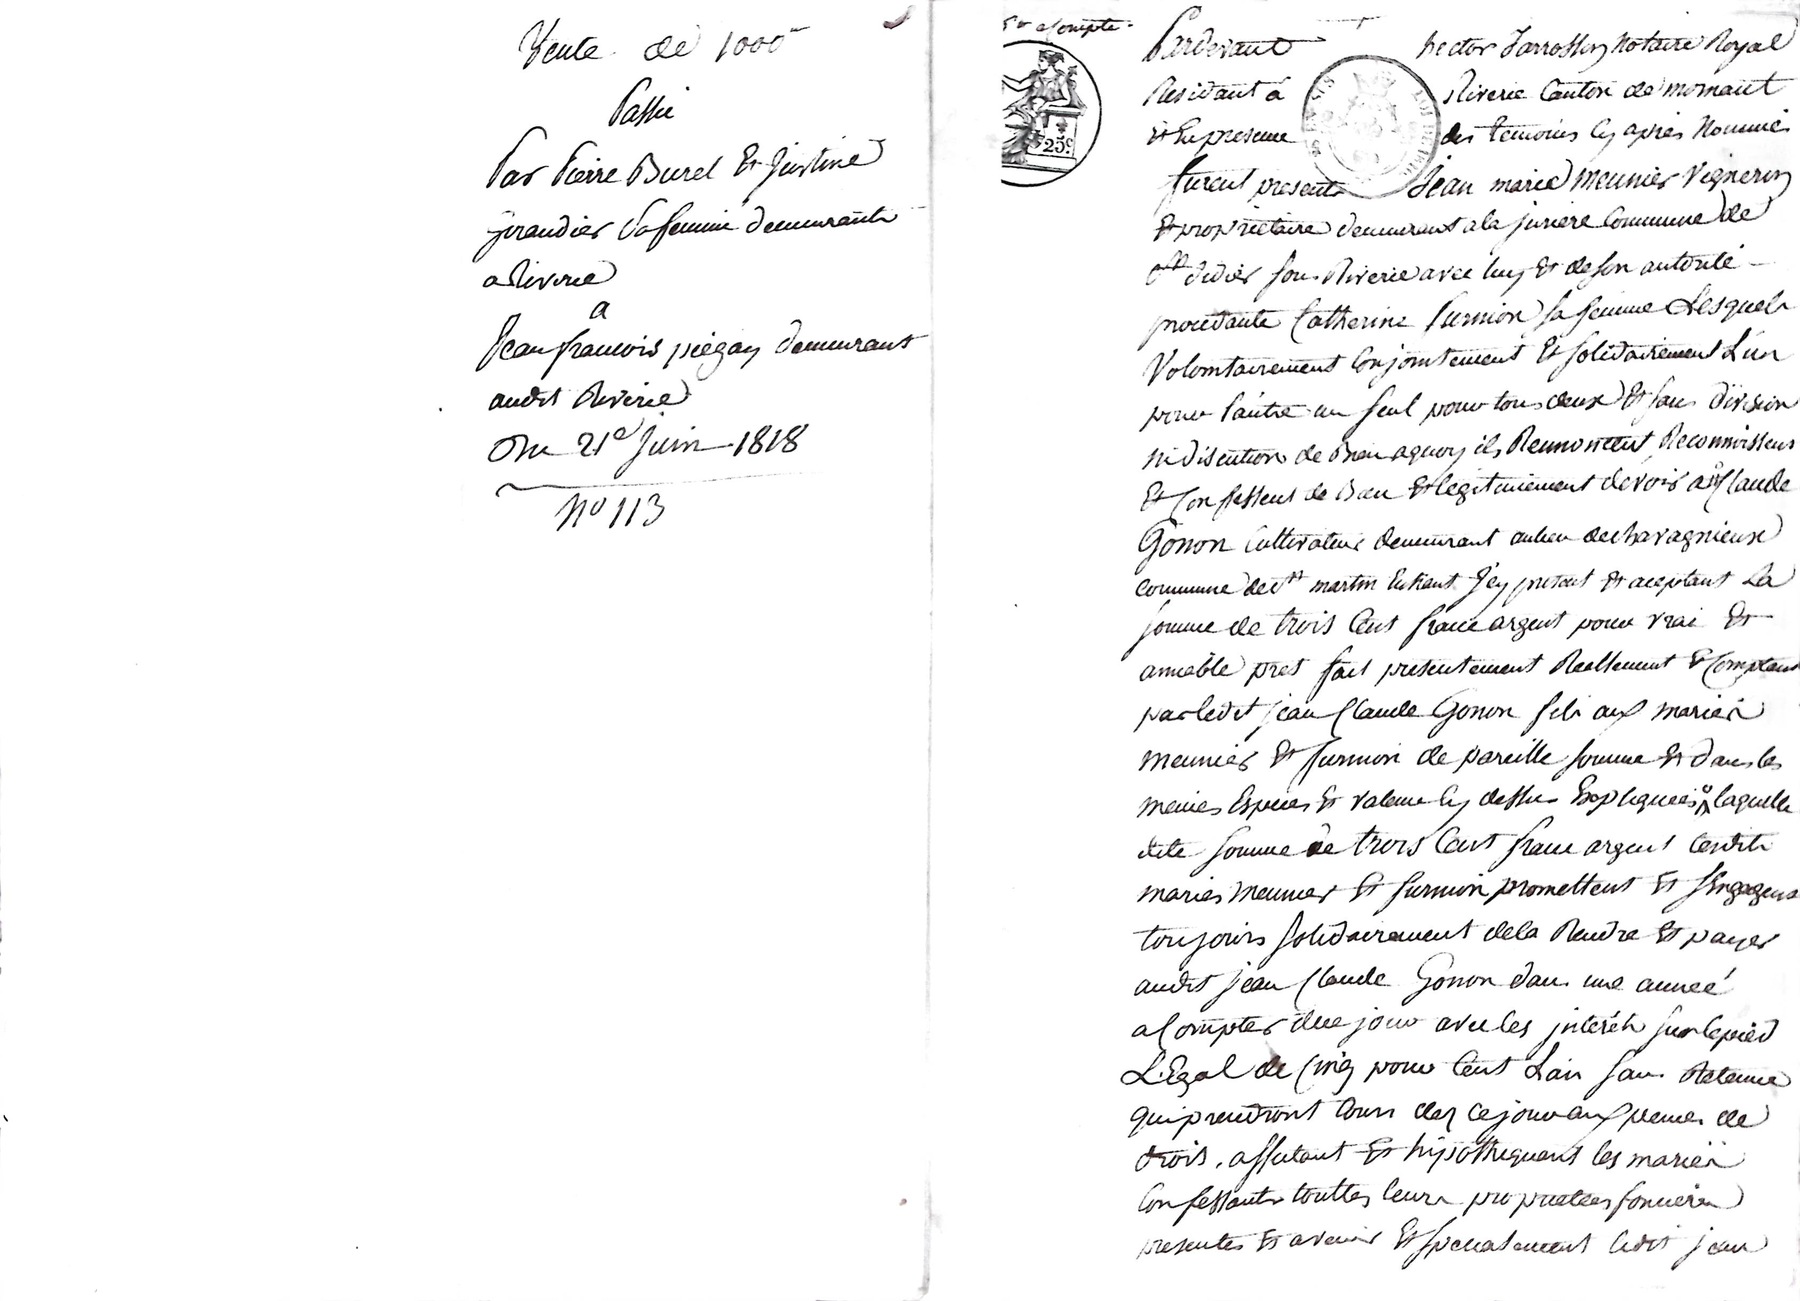 Vente de 1000
Passée
Par Pierre Burel Et Justine
Grandier Sa femme demeurants
a Riverie
a
Jean francois piegay demeurant
audit Riverie
Du 21e Juin 1818
No 113
5me a Compte
25c
Pardevant hector Jarrosson Notaire Royal
Residant à Riverie Canton de mornant
Et En presence des temoins Cy après Nommés
furent presents Jean marie meunier Vigneron
Et proprietaire demeurant a la juriere Commune de
st didier sous Riverie avec luy Et de son autorité
procedante Catherine furnion sa femme Lesquels
Volontairement Conjointement Et solidairement L'un
pour l'autre un seul pour tous deux Et sans division
ni discution de Bien aquoy ils Renoncent Reconnoissent
Et Confessent de Bien Et legitimement devoir a Claude
Gonon Cultivateur demeurant au lieu de chavagnieux
Commune de st martin En haut Icy présent Et aceptant La
somme de trois Cent franc argent pour vrai Et
amiable pret fait presentement Reellement Et Comptant
par ledit jean Claude Gonon fils aux mariés
meunier Et furnion de pareille somme Et dans les
memes Especes Et valeur Cy dessus Expliquées laquelle
dite somme de trois Cent franc argent lesdits
mariés meunier Et furnion promettent Et s'Engagent
toujours solidairement de la Rendre Et payer
audit jean Claude Gonon dans une année
a Compter de ce jour avec les interêts sur le pied
L'Egal de Cinq pour Cent L'an sans Retenue
qui prendront Cours des ce jour aux peines de
droit, affectant Et hipothequant les mariés
Confessants touttes leurs proprietées foncieres
presentes Et avenir Et specialement ledit jean